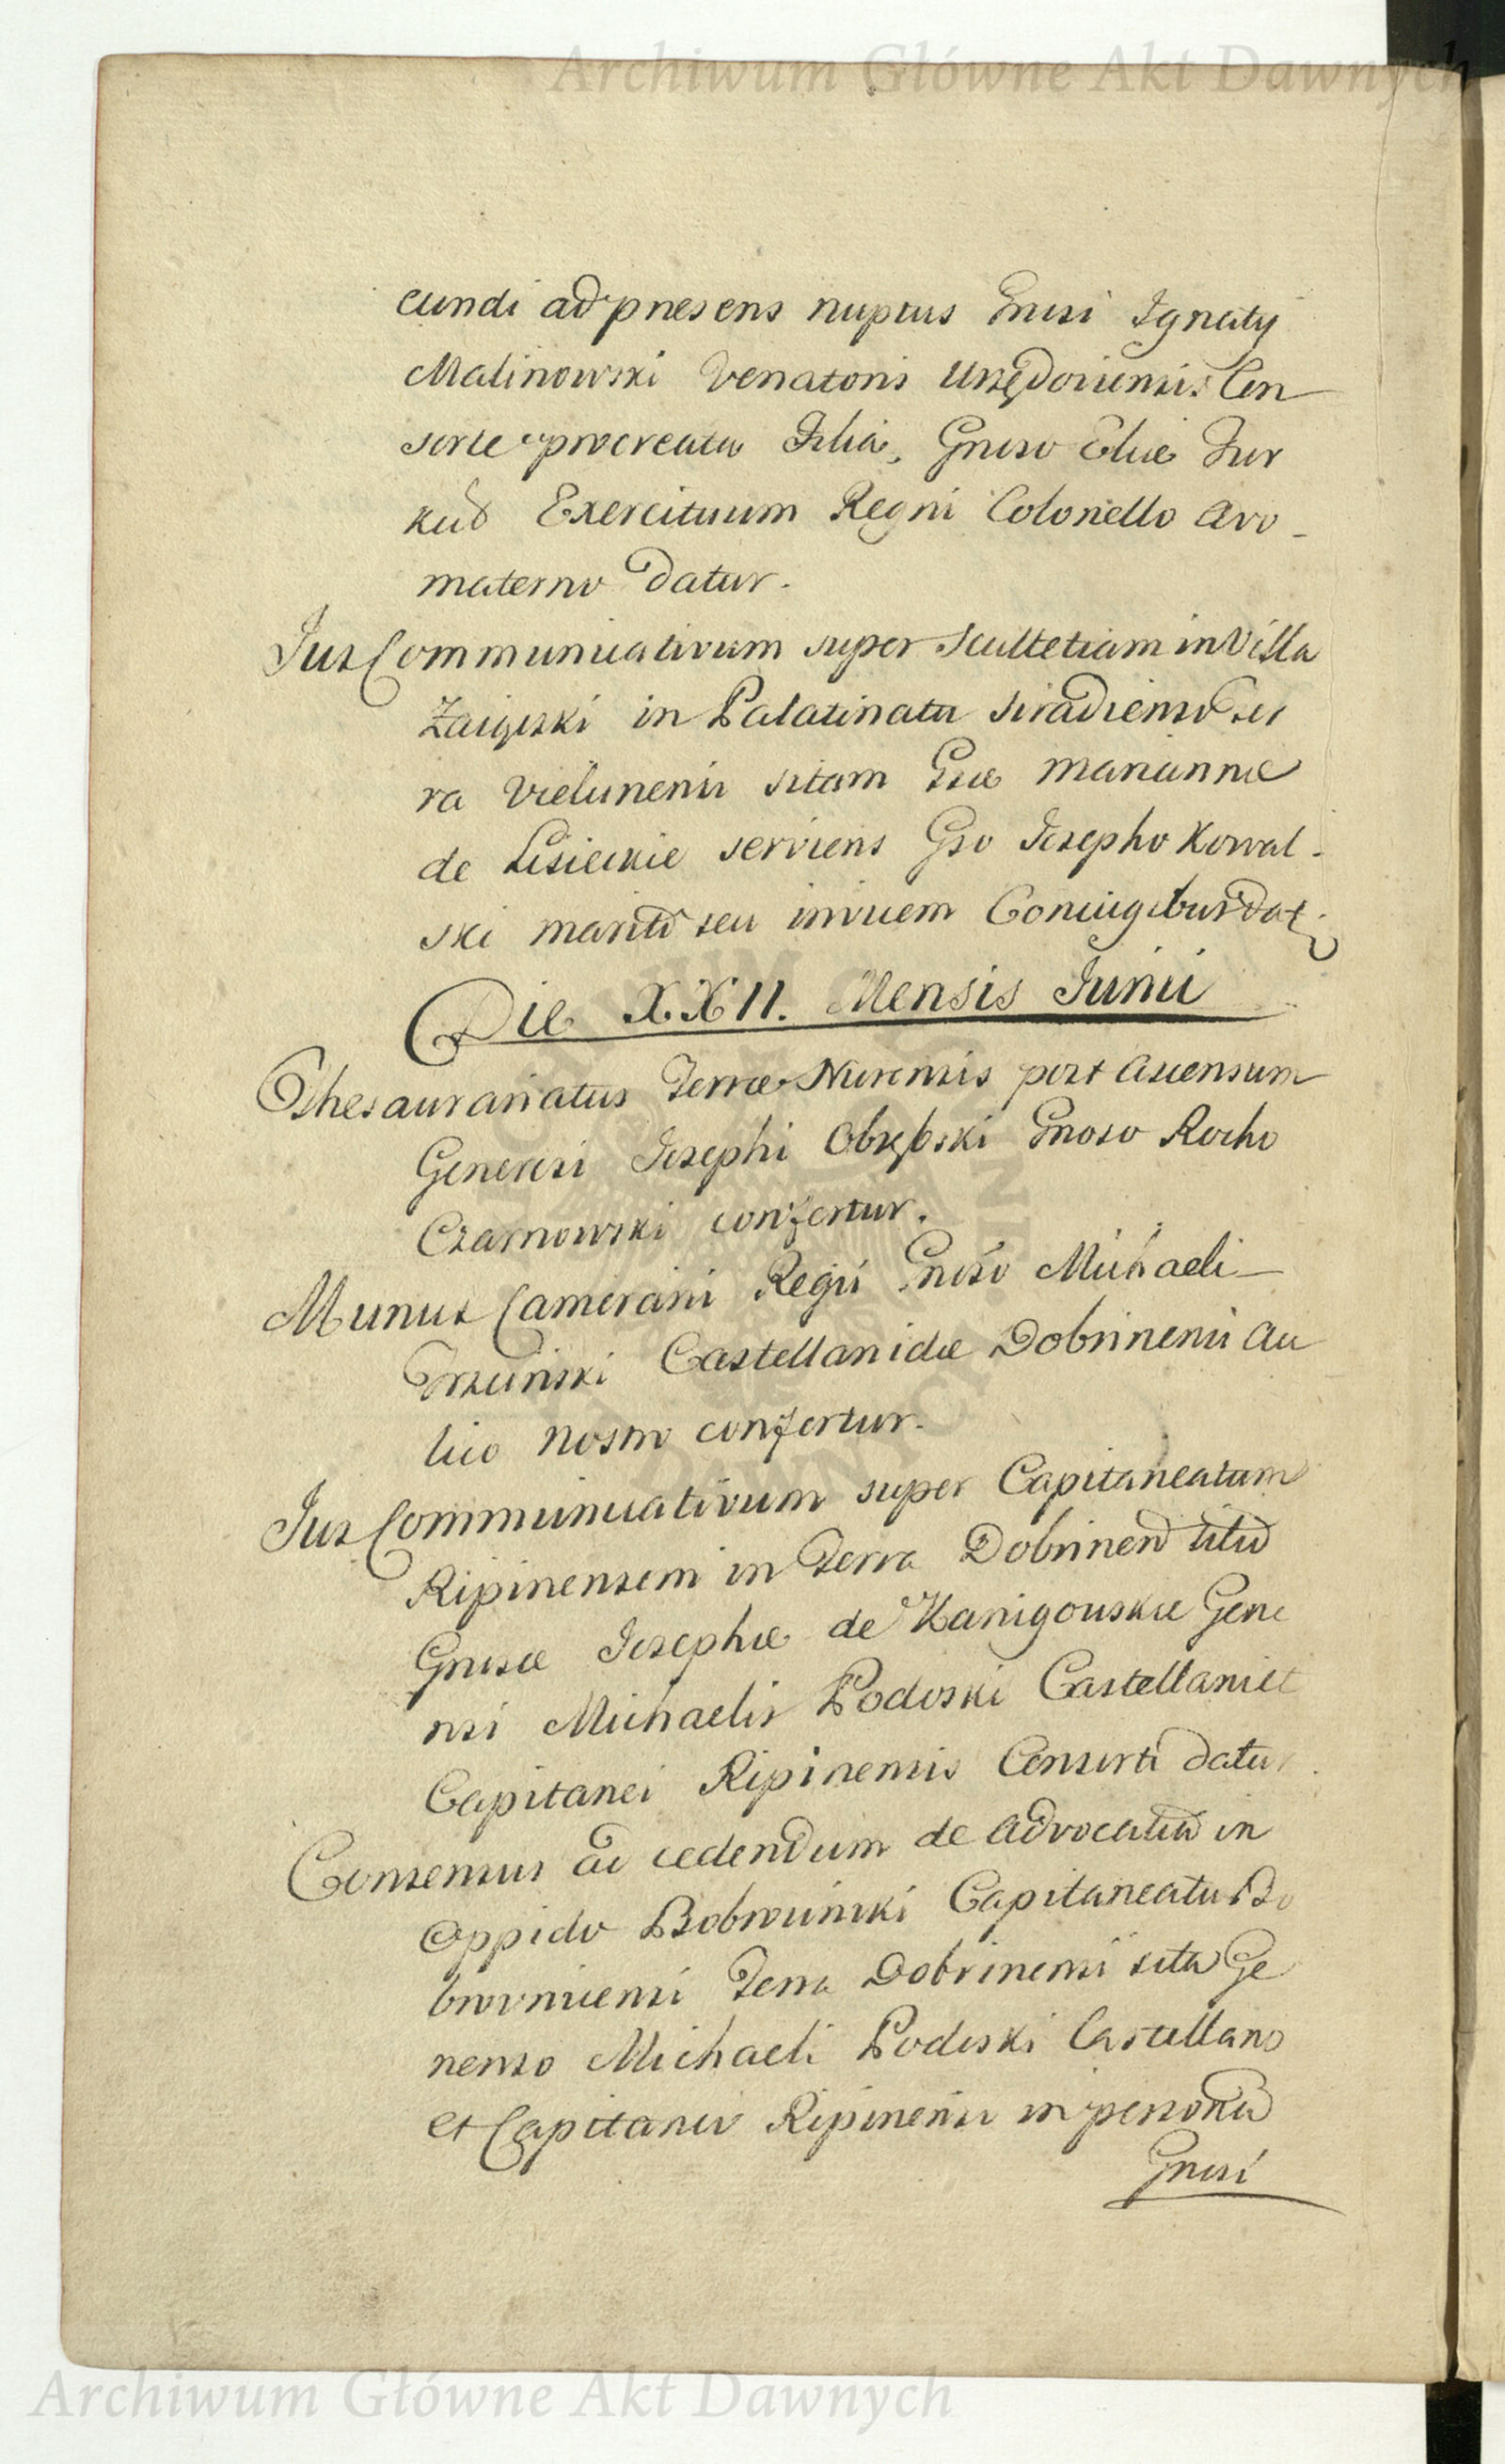 Archiwum Główne Akt Dawnych
cundi ad præsens nuptus Gnosi Ignatij
Malinowski Venatoris Urzędoviensis Con
sorte procreata Filia, Gnoso Eliæ Tur
kuł Exercituum Regni Colonello Avo
materno datur.
Jus Communicativum super Scultetiam in Villa
in Palatinatu Siradiensi Ter
ra Vielunensi sitam Gsæ Mariannæ
de Lisieckie serviens Gso Josepho Kowal-
ski marito seu invicem Coniugibus dat.
Die XXII. Mensis Junii
Thesaurariatus Terræ Nurensis post Ascensum
Generosi Josephi Obrębski Gnoso Rocho
Czarnowski confertur.
Munus Camerarii Regii Gnoso Michaeli
Trzciński Castellanidæ Dobrinensi Au
lico Nostro confertur.
Jus Communicativum super Capitaneatum
Ripinensem in Terra Dobrinen sitū
Gnosæ Josephæ de Kanigowskie Gene
rosi Michaelis Podoski Castellani et
Capitanei Ripinensis Consorti datur.
Consensus ad cedendum de Advocatia in
Oppido Bobrowniki Capitaneatu Bo
browniensi Terra Dobrinensi sita Ge
neroso Michaeli Podoski Castellano
et Capitaneo Ripinensi in personam
Gnosi
Archiwum Główne Akt Dawnych